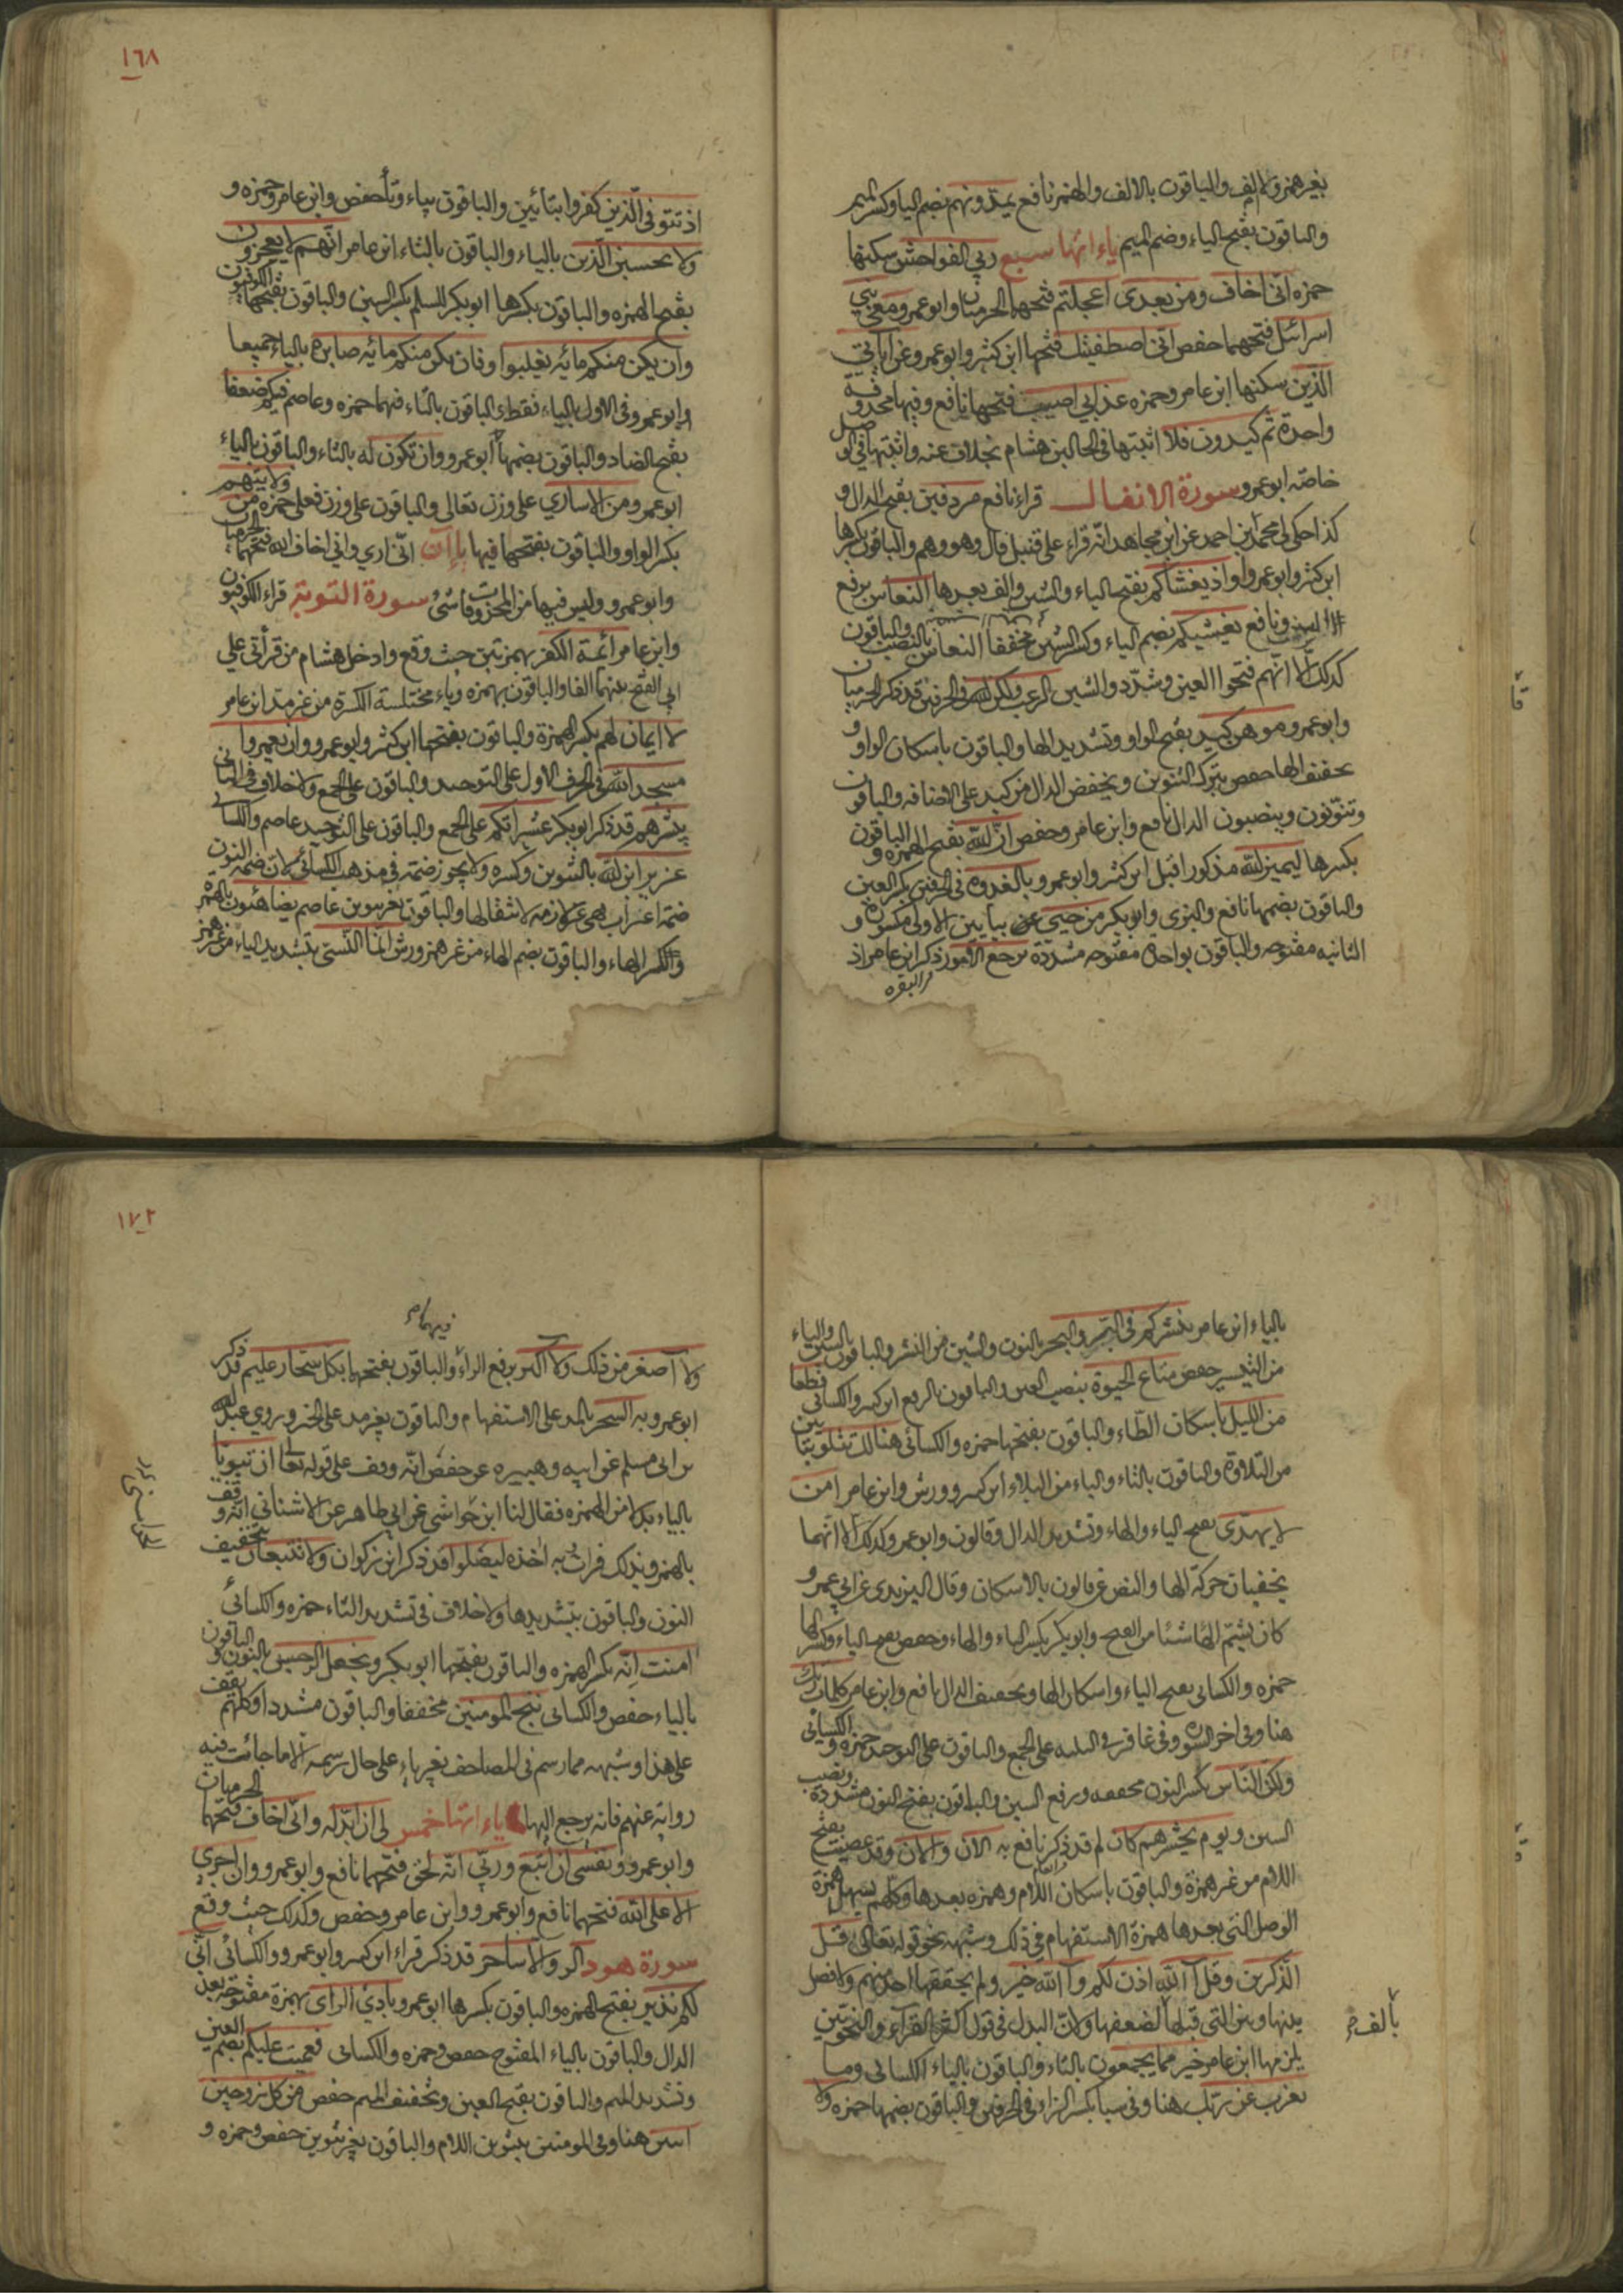 بغير همز ولا الف والباقون بالالف والهمز نافع يمدونهم بضم الياء وكسر الميم
والباقون بفتح الياء وضم الميم ياء اتها سبع ربي الفواحش سكنها
حمزه اني اخاف ومن بعدى اعجلتم فتحهما الحرميان وابو عمرو ومعي بني
اسرائيل فتحهما حفص اني اصطفيتك فتحها ابن كثير وابو عمرو وعن آياتي
الذين سكنها ابن عامر وحمزه عذابي اصيب فتحها نافع وفيها محذوفة
واحدة ثم كيدون فلا اثبتها في الحالين هشام بخلاف عنه واثبتها في الوصل
خاصه ابو عمرو سورة الانفال قراء نافع مردفين بفتح الدال و
كذا حكى لي محمد ابن احمد عن ابن مجاهد انه قراء على قنبل قال وهو وهم والباقون بكسرها
ابن كثير وابو عمرو اذ يغشاكم بفتح الياء والشين والف بعدها النعاس برفع
السين ونافع يغشيكم بضم الياء وكسر الشين مخففا النعاس بالنصب والباقون
كذلك الا انهم فتحوا الغين وشدد والشين الرعب ولكن الله في الحرفين قد ذكر الحرميان
وابو عمرو موهن كيد بفتح الواو وتشديد الها والباقون باسكان الواو و
تخفيف الها حفص يترك التنوين ويخفض الدال من كيد على الاضافه والباقون
وتنونون وينصبون الدال نافع وابن عامر وحفص ان الله بفتح الهمزه و الباقون
بكسرها ليميز الله مذكور اقبل ابن كثير وابو عمرو بالعدوه في الحرفين بكسر العين
والباقون بضمها نافع والبزي وابو بكر من حيي عن بيايين الاولى مكسوره و
الثانيه مفتوحه والباقون بواحده مفتوحه مشددة ترجع الامور ذكر ابن عامر اذ
في البقره
١٦٨
اذ تتوفى الذين كفروا بتائين والباقون بياء وتا حفص وابن عامر وحمزه و
ولا تحسبن الذين بالياء والباقون بالتاء ابن عامر انهم لا يعجزون
بفتح الهمزه والباقون بكسرها ابو بكر للسلم بكسر السين والباقون بفتحها الكوفيون
وان يكن منكم مائه يغلبوا وفان يكن منكم مائه صابره بالياء جميعا
وابو عمرو في الاول بالياء فقط والباقون بالتاء فيهما حمزه وعاصم فيكم ضعفا
بفتح الضاد والباقون بضمها ابو عمرو وان تكون له بالتاء والباقون بالياء
ابو عمرو ومن الاساري على وزن تعالى والباقون على وزن فعلى حمزه من ولايتهم
بكسر الواو والباقون بفتحها فيها يا آن اني اري واني اخاف الله فتحهما الحرميان
وابو عمرو وليس فيها من المحذوفات شئ سورة التوبة قراء الكوفيون
وابن عامر ائمة الكفر بهمزتين حيث وقع وادخل هشام من قرأتي على
ابي الفتح بينهما الفا والباقون بهمزه وياء مختلسة الكسرة من غير مد ابن عامر
لا ايمان لهم بكسر الهمزة والباقون بفتحها ابن كثير وابو عمرو وان يعمروا
مسجد الله في الحرف الاول على التوحيد والباقون على الجمع ولا خلاف في الثاني
يبشرهم قد ذكر ابو بكر عشيراتكم على الجمع والباقون على التوحيد عاصم والكسائي
عزير ابن الله بالتنوين وكسره ولا يجوز ضمته في مذهب الكسائي لان ضمة النون
ضمة اعراب فهي غير لازمه لا نتقالها والباقون بغير تنوين عاصم يضاهئون بالهمزه
والكسر الهاء والباقون بضم الهاء من غير همز ورش انما النسي بتشديد الياء من غير همز
بالياء ابن عامر ينشركم في البر والبحر بالنون والشين من النشر والباقون بالسين والياء
من التيسير حفص متاع الحيوة بنصب العين والباقون بالرفع ابن كثير والكسائي قطعا
من الليل باسكان الطاء والباقون بفتحها حمزه والكسائي هنالك تتلو بتائين
من التلاوة والباقون بالتاء والباء من البلاء ابن كثير وورش وابن عامر امن
لا يهدى بفتح الياء والهاء وتشديد الدال وقالون وابو عمرو كذلك الا انهما
يخفيان حركة الها والنص عن قالون بالاسكان وقال اليزيدى عن ابي عمرو
كان يشم الها شئا من الفتح وابو بكر بكسر الياء والهاء وحفص بفتح الياء وكسر الها
حمزه والكسائي بفتح الياء واسكان الها وتخفيف الدال نافع وابن عامر كلمات ربك
هنا وفي اخر السوره وفي غافر في الثلثه على الجمع والباقون على التوحيد حمزه والكسائي
ولكن الناس بكسر النون مخففه ورفع السين والباقون بفتح النون مشددة ونصب
السين ويوم يحشرهم كان لم قد ذكر نافع به الآن والآن وقد عصيت بفتح
اللام من غير همزة والباقون باسكان اللام وهمزه بعدها وكلهم يسهل همزة
الوصل التي بعدها همزة الاستفهام في ذلك وشبهه نحو قوله تعالى قل
آلذكرين وقل آلله اذن لكم وآلله خير ولم يحققها احد منهم ولا فصل
بينها وبين التي قبلها لضعفها ولان البدل في قول اكثر القراء والنحويين
بألف
يلزمها ابن عامر خير مما يجمعون بالتاء والباقون بالياء الكسائي وما
يعزب عن ربك هنا وفي سبا بكسر الزا في الحرفين والباقون بضمها حمزه ولا
١٧٢
فيهما
ولا اصغر من ذلك ولا اكبر برفع الراء والباقون بفتحها بكل سحار عليم قد ذكر
ابو عمرو به السحر بالمد على الاستفهام والباقون بغير مد على الخبر وروى عبد الله
بن ابي مسلم عن ابيه وهبيره عن حفص انه وقف على قوله تعالى ان تبويا
بالياء بدلا من الهمزه فقال لنا ابن خواشتي عن ابي طاهر عن الاشناني انه وقف
بالهمز وبذلك قرات به اخذه ليضلوا قد ذكر ابن زكوان ولا تتبعان بتخفيف
النون والباقون بتشديدها ولا خلاف في تشديد التاء حمزه والكسائي
امنت انه بكسر الهمزه والباقون بفتحها ابو بكر ونجعل الرجس بالنون و الباقون
بالياء حفص والكسائي ننج المومنين مخففا والباقون مشددا وكلهم يقف
على هذا وشبهه مما رسم في المصاحف بغير ياء على حال رسمه الا ما جائت فيه
روايه عنهم فانه يرجع اليها ياء اتها خمس لي ان ابدله واني اخاف فتحهما الحرميان
وابو عمرو ونفسي ان اتبع وربي انه لحق فتحهما نافع وابو عمرو وان اجري
الا على الله فتحها نافع وابو عمرو وابن عامر وحفص وكذلك حيث وقع
سورة هود الر والا ساحر قد ذكر قراء ابن كثير وابو عمرو والكسائي اني
لكم نذير بفتح الهمزه والباقون بكسرها ابو عمرو بادئ الراى بهمزة مفتوحه بعد
الدال والباقون بالياء المفتوح حفص وحمزه والكسائي فعميت عليكم بضم العين
وتشديد الميم والباقون بفتح العين وتخفيف الميم حفص من كل زوجين
اثنين هنا وفي المومنين بتنوين اللام والباقون بغير تنوين حفص وحمزه و